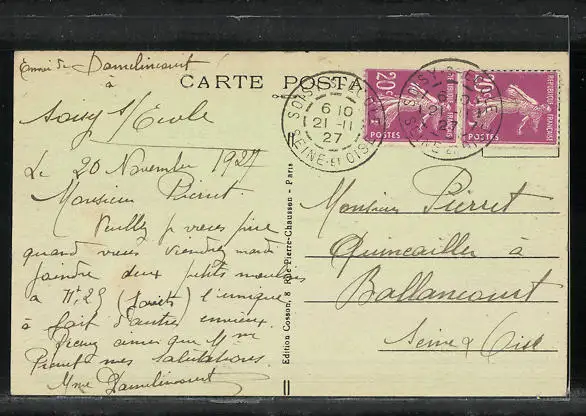 Envoi de Damelincourt
à
Soisy s/ Ecole
CARTE POSTA
Le 20 Novembre 1927
Monsieur Pierret
Veuillez
quand vous viendrez mardi
joindre deux petits moulins
à 11f,25 (forêts) l'unique
à fait d'autres envieux.
ainsi que Mme
Pierret mes salutations.
Mme Damelincourt
Edition Cosson, 8 Rue Pierre-Chausson - Paris
SOISY-S-ECOLE
6 10
21 -11
27
SEINE-ET-OISE
20c
REPUBLIQUE FRANÇAISE
POSTES
20c
REPUBLIQUE FRANÇAISE
POSTES
Monsieur Pierret
Quincailler à
Ballancourt
Seine & Oise